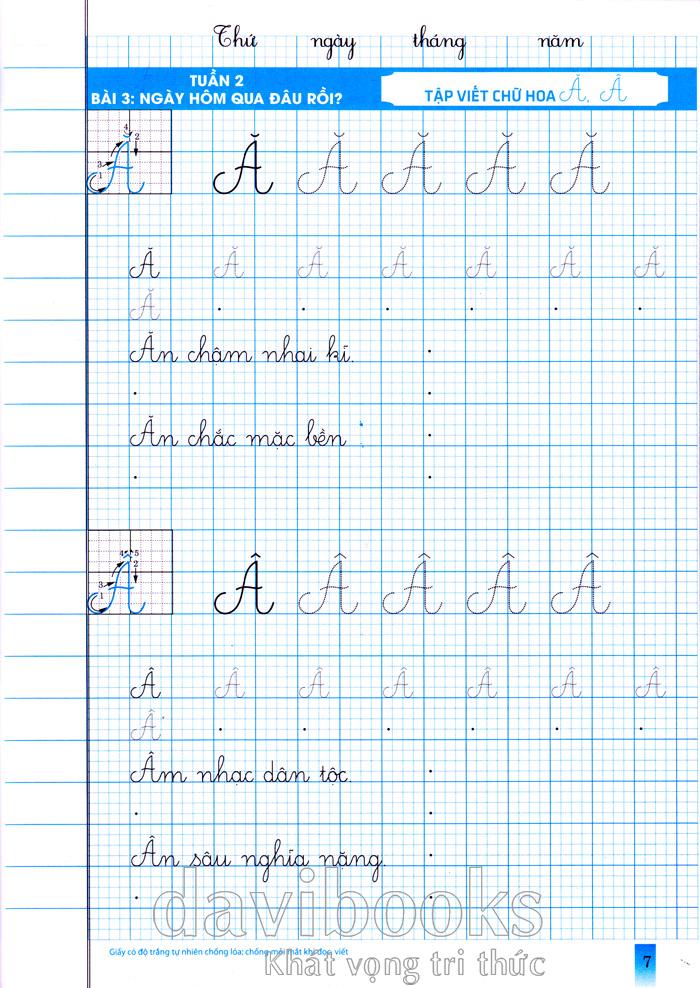 Thứ ngày tháng năm
TUẦN 2
BÀI 3: NGÀY HÔM QUA ĐÂU RỒI?
TẬP VIẾT CHỮ HOA Ă, Â
4 2 3 1
Ă Ă Ă Ă Ă
Ă Ă Ă Ă Ă Ă Ă
Ă
Ăn chậm nhai kĩ.
Ăn chắc mặc bền
4 5 2 3 1
Â Â Â Â Â
Â Â Â Â Â Â Â
Â
Âm nhạc dân tộc.
Ân sâu nghĩa nặng.
davibooks
Giấy có độ trắng tự nhiên chống lóa; chống mỏi mắt khi đọc, viết
Khát vọng tri thức
7